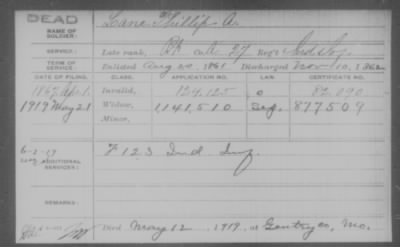 DEAD
NAME OF SOLDIER: Lane Phillip A.
SERVICE: Late rank, Pvt Co. A 27 Reg't Ind Inf
TERM OF SERVICE: Enlisted Aug 20, 1861 Discharged Nov. 10, 1862
DATE OF FILING. CLASS. APPLICATION NO. LAW. CERTIFICATE NO.
1867 Apr 1. Invalid, 124,125 82,090
1919 May 21 Widow, 1,141,510 877509
Minor,
ADDITIONAL SERVICES: F 123 Ind Inf.
REMARKS:
Died May 12, 1919, at Gentry Co, Mo.